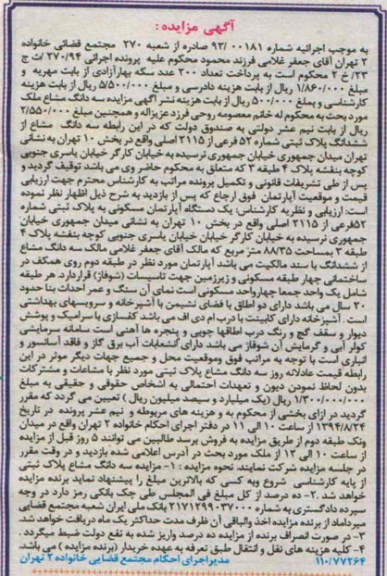 آگهی مزایده:
به موجب اجرائیه شماره ۰۰۱۸۱/ ۹۳ صادره از شعبه ۲۷۰ مجتمع قضائی خانواده
۲ تهران آقای جعفر غلامی فرزند محمود محکوم علیه پرونده اجرائی ۲۷۰/۹۴ ث ج
۲۳/ خ ۲ محکوم است به پرداخت تعداد ۲۰۰ عدد سکه بهارآزادی از بابت مهریه و
مبلغ ۱/۸۶۰/۰۰۰ ریال از بابت هزینه دادرسی و مبلغ ۵/۵۰۰/۰۰۰ ریال از بابت هزینه
کارشناسی و بمبلغ ۵۰۰/۰۰۰ ریال از بابت هزینه نشر آگهی مزایده سه دانگ مشاع ملک
مورد بحث به محکوم له خانم معصومه روحی فرزند عزیزاله و همچنین مبلغ ۲/۵۵۰/۰۰۰
ریال از بابت نیم عشر دولتی به صندوق دولت که در این رابطه سه دانگ مشاع از
ششدانگ پلاک ثبتی شماره ۵۲ فرعی از ۲۱۱۵ اصلی واقع در بخش ۱۰ تهران به نشانی
تهران میدان جمهوری خیابان جمهوری نرسیده به خیابان کارگر خیابان یاسری جنوبی
کوچه بنفشه پلاک ۴ طبقه ۳ که متعلق به محکوم حاضر وی می باشد توقیف گردید و
پس از طی تشریفات قانونی و تکمیل پرونده مراتب به کارشناس محترم جهت ارزیابی
قیمت و موقعیت آپارتمان فوق ارجاع که پس از بازدید به شرح ذیل اظهار نظر نموده
است: ارزیابی و نظریه کارشناس: یک دستگاه آپارتمان مسکونی به پلاک ثبتی شماره
۵۲فرعی از ۲۱۱۵ اصلی واقع در بخش ۱۰ تهران به نشانی میدان جمهوری خیابان
جمهوری نرسیده به خیابان کارگر خیابان خیابان یاسری جنوبی کوچه بنفشه پلاک ۴
طبقه ۳ بمساحت ۸۸/۳۵ متر مربع که مالک آقای جعفر غلامی مالک سه دانگ مشاع
از ششدانگ با سند مالکیت می باشد آپارتمان مورد نظر در طبقه دوم روی همکف در
ساختمانی چهار طبقه مسکونی و زیرزمین جهت تاسیسات (شوفاژ) قراردارد. هر طبقه
شامل یک واحد جمعا چهارواحد مسکونی است نمای آن سنگ و عمر احداث بنا حدود
۲۰ سال می باشد دارای دو اطاق با فضای نشیمن با آشپزخانه و سرویسهای بهداشتی
است. آشپزخانه دارای کابینت با درب ام دی اف می باشد کفسازی با سرامیک و پوشش
دیوار و سقف گچ و رنگ درب اطاقها چوبی و پنجره ها آهنی است سامانه سرمایشی
کولر آبی و گرمایش آن شوفاژ می باشد دارای انشعابات آب برق گاز و فاقد آسانسور و
انباری است با توجه به مراتب فوق وموقعیت محل و جمیع جهات دیگر موثر در این
رابطه قیمت عادلانه روز سه دانگ مشاع پلاک ثبتی مورد نظر با مشاعات و مشترکات
بدون لحاظ نمودن دیون و تعهدات احتمالی به اشخاص حقوقی و حقیقی به مبلغ
۱/۳۰۰/۰۰۰/۰۰۰ ریال (یک میلیارد و سیصد میلیون ریال ) تعیین می گردد که مقرر
گردید در ازای بخشی از محکوم به و هزینه های مربوطه و نیم عشر پرونده در تاریخ
۱۳۹۴/۸/۲۴ از ساعت ۱۰ الی ۱۱ در دفتر اجرای احکام خانواده ۲ تهران واقع در میدان
ونک طبقه دوم از طریق مزایده به فروش برسد طالبین می توانند ۵ روز قبل از مزایده
از ساعت ۱۰ الی ۱۲ از ملک مورد بحث در آدرس اعلامی شده بازدید و در وقت مقرر
در جلسه مزایده شرکت نمایند. نحوه مزایده : ۱- مزایده سه دانگ مشاع پلاک ثبتی
از پایه کارشناسی شروع وبه کسی که بالاترین مبلغ را پیشنهاد نماید برنده مزایده
خواهد شد .۲- ده درصد از کل مبلغ فی المجلس طی چک بانکی رمز دارد در وجه
سپرده دادگستری به شماره ۲۱۷۱۲۹۹۰۳۷۰۰۰ بانک ملی ایران شعبه مجتمع قضایی
میرداماد از برنده مزایده اخذ والباقی آن ظرف مدت حداکثر یک ماه دریافت خواهد شد.
۳- در صورت انصراف برنده از مزایده ده درصد واریز شده به نفع دولت ضبط میگردد .
۴- کلیه هزینه های نقل و انتقال طبق تعرفه به عهده خریدار (برنده مزایده ) می باشد.
۱۱۰/۷۷۲۶۴ مدیراجرای احکام مجتمع قضایی خانواده ۲ تهران